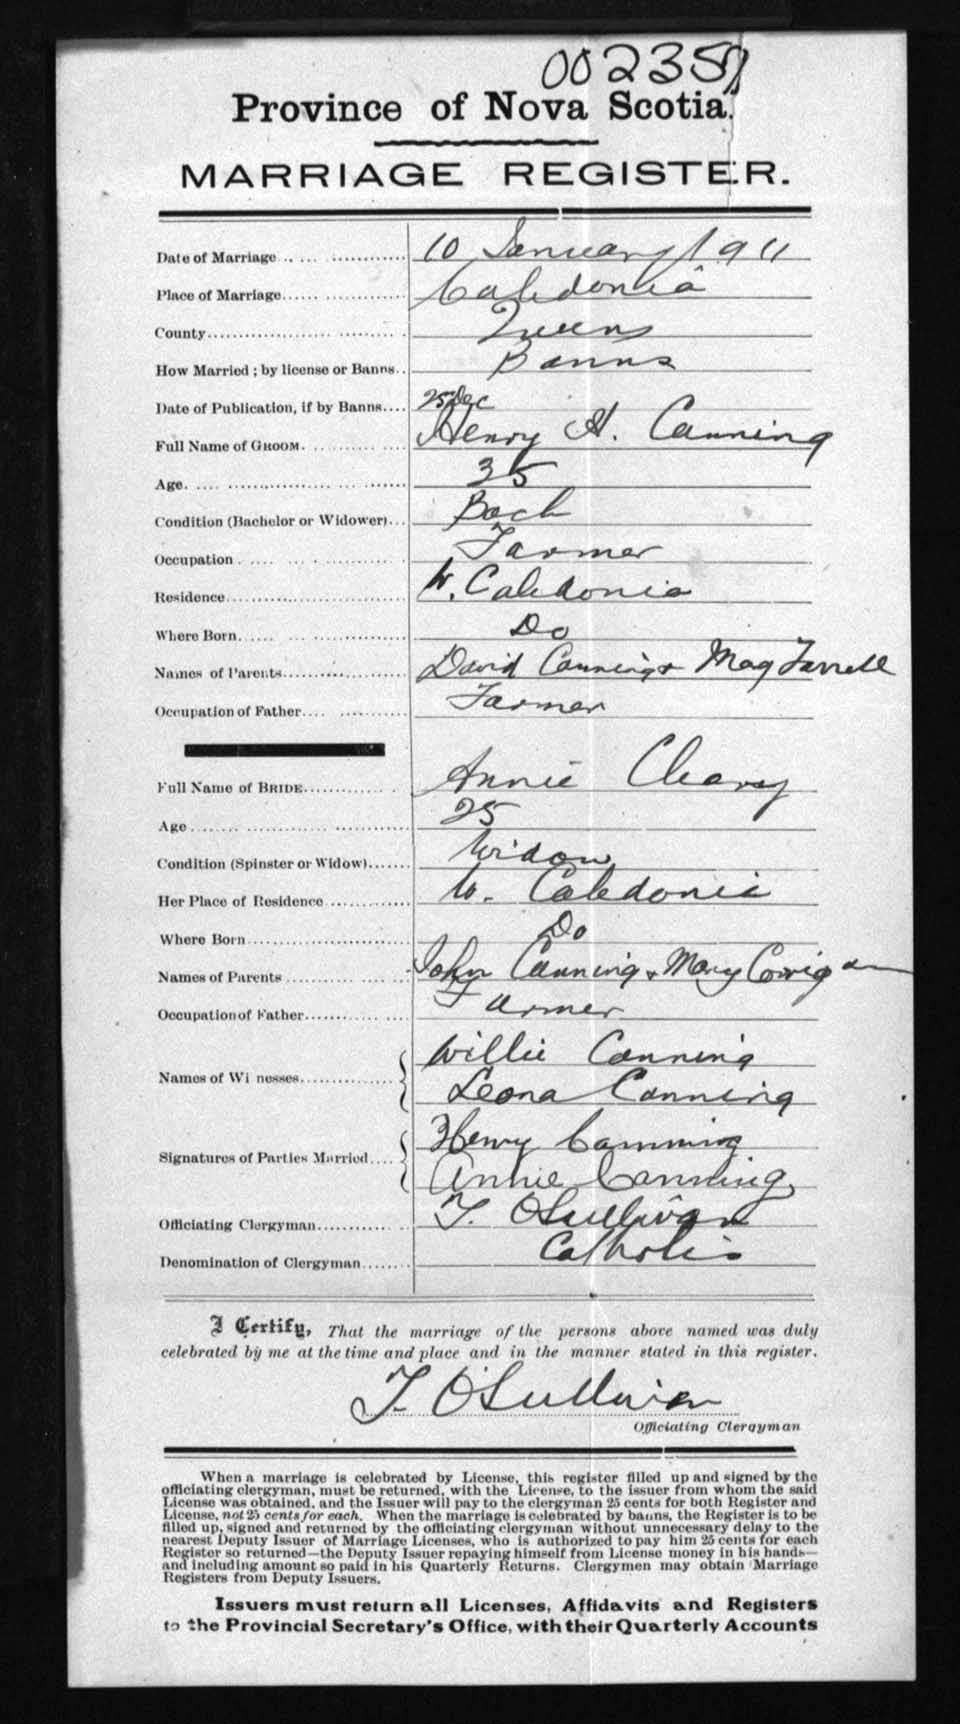 002351
Province of Nova Scotia.
MARRIAGE REGISTER.
Date of Marriage 10 January 1911
Place of Marriage Caledonia
County Queens
How Married ; by license or Banns Banns
Date of Publication, if by Banns 25 Dec
Full Name of GROOM Henry H. Canning
Age 35
Condition (Bachelor or Widower) Bach
Occupation Farmer
Residence W. Caledonia
Where Born Do
Names of Parents David Canning + Mag Farrell
Occupation of Father Farmer
Full Name of BRIDE Annie Cleary
Age 25
Condition (Spinster or Widow) Widow
Her Place of Residence W. Caledonia
Where Born Do
Names of Parents John Canning + Mary Corrigan
Occupation of Father Farmer
Names of Wi nesses Willie Canning
Leona Canning
Signatures of Parties Married Henry Canning
Annie Canning
Officiating Clergyman T. O'Sullivan
Denomination of Clergyman Catholic
I Certify, That the marriage of the persons above named was duly
celebrated by me at the time and place and in the manner stated in this register.
T. O'Sullivan
Officiating Clergyman
When a marriage is celebrated by License, this register filled up and signed by the
officiating clergyman, must be returned, with the License, to the issuer from whom the said
License was obtained, and the Issuer will pay to the clergyman 25 cents for both Register and
License, not 25 cents for each. When the marriage is celebrated by banns, the Register is to be
filled up, signed and returned by the officiating clergyman without unnecessary delay to the
nearest Deputy Issuer of Marriage Licenses, who is authorized to pay him 25 cents for each
Register so returned—the Deputy Issuer repaying himself from License money in his hands—
and including amount so paid in his Quarterly Returns. Clergymen may obtain Marriage
Registers from Deputy Issuers.
Issuers must return all Licenses, Affidavits and Registers
to the Provincial Secretary's Office, with their Quarterly Accounts